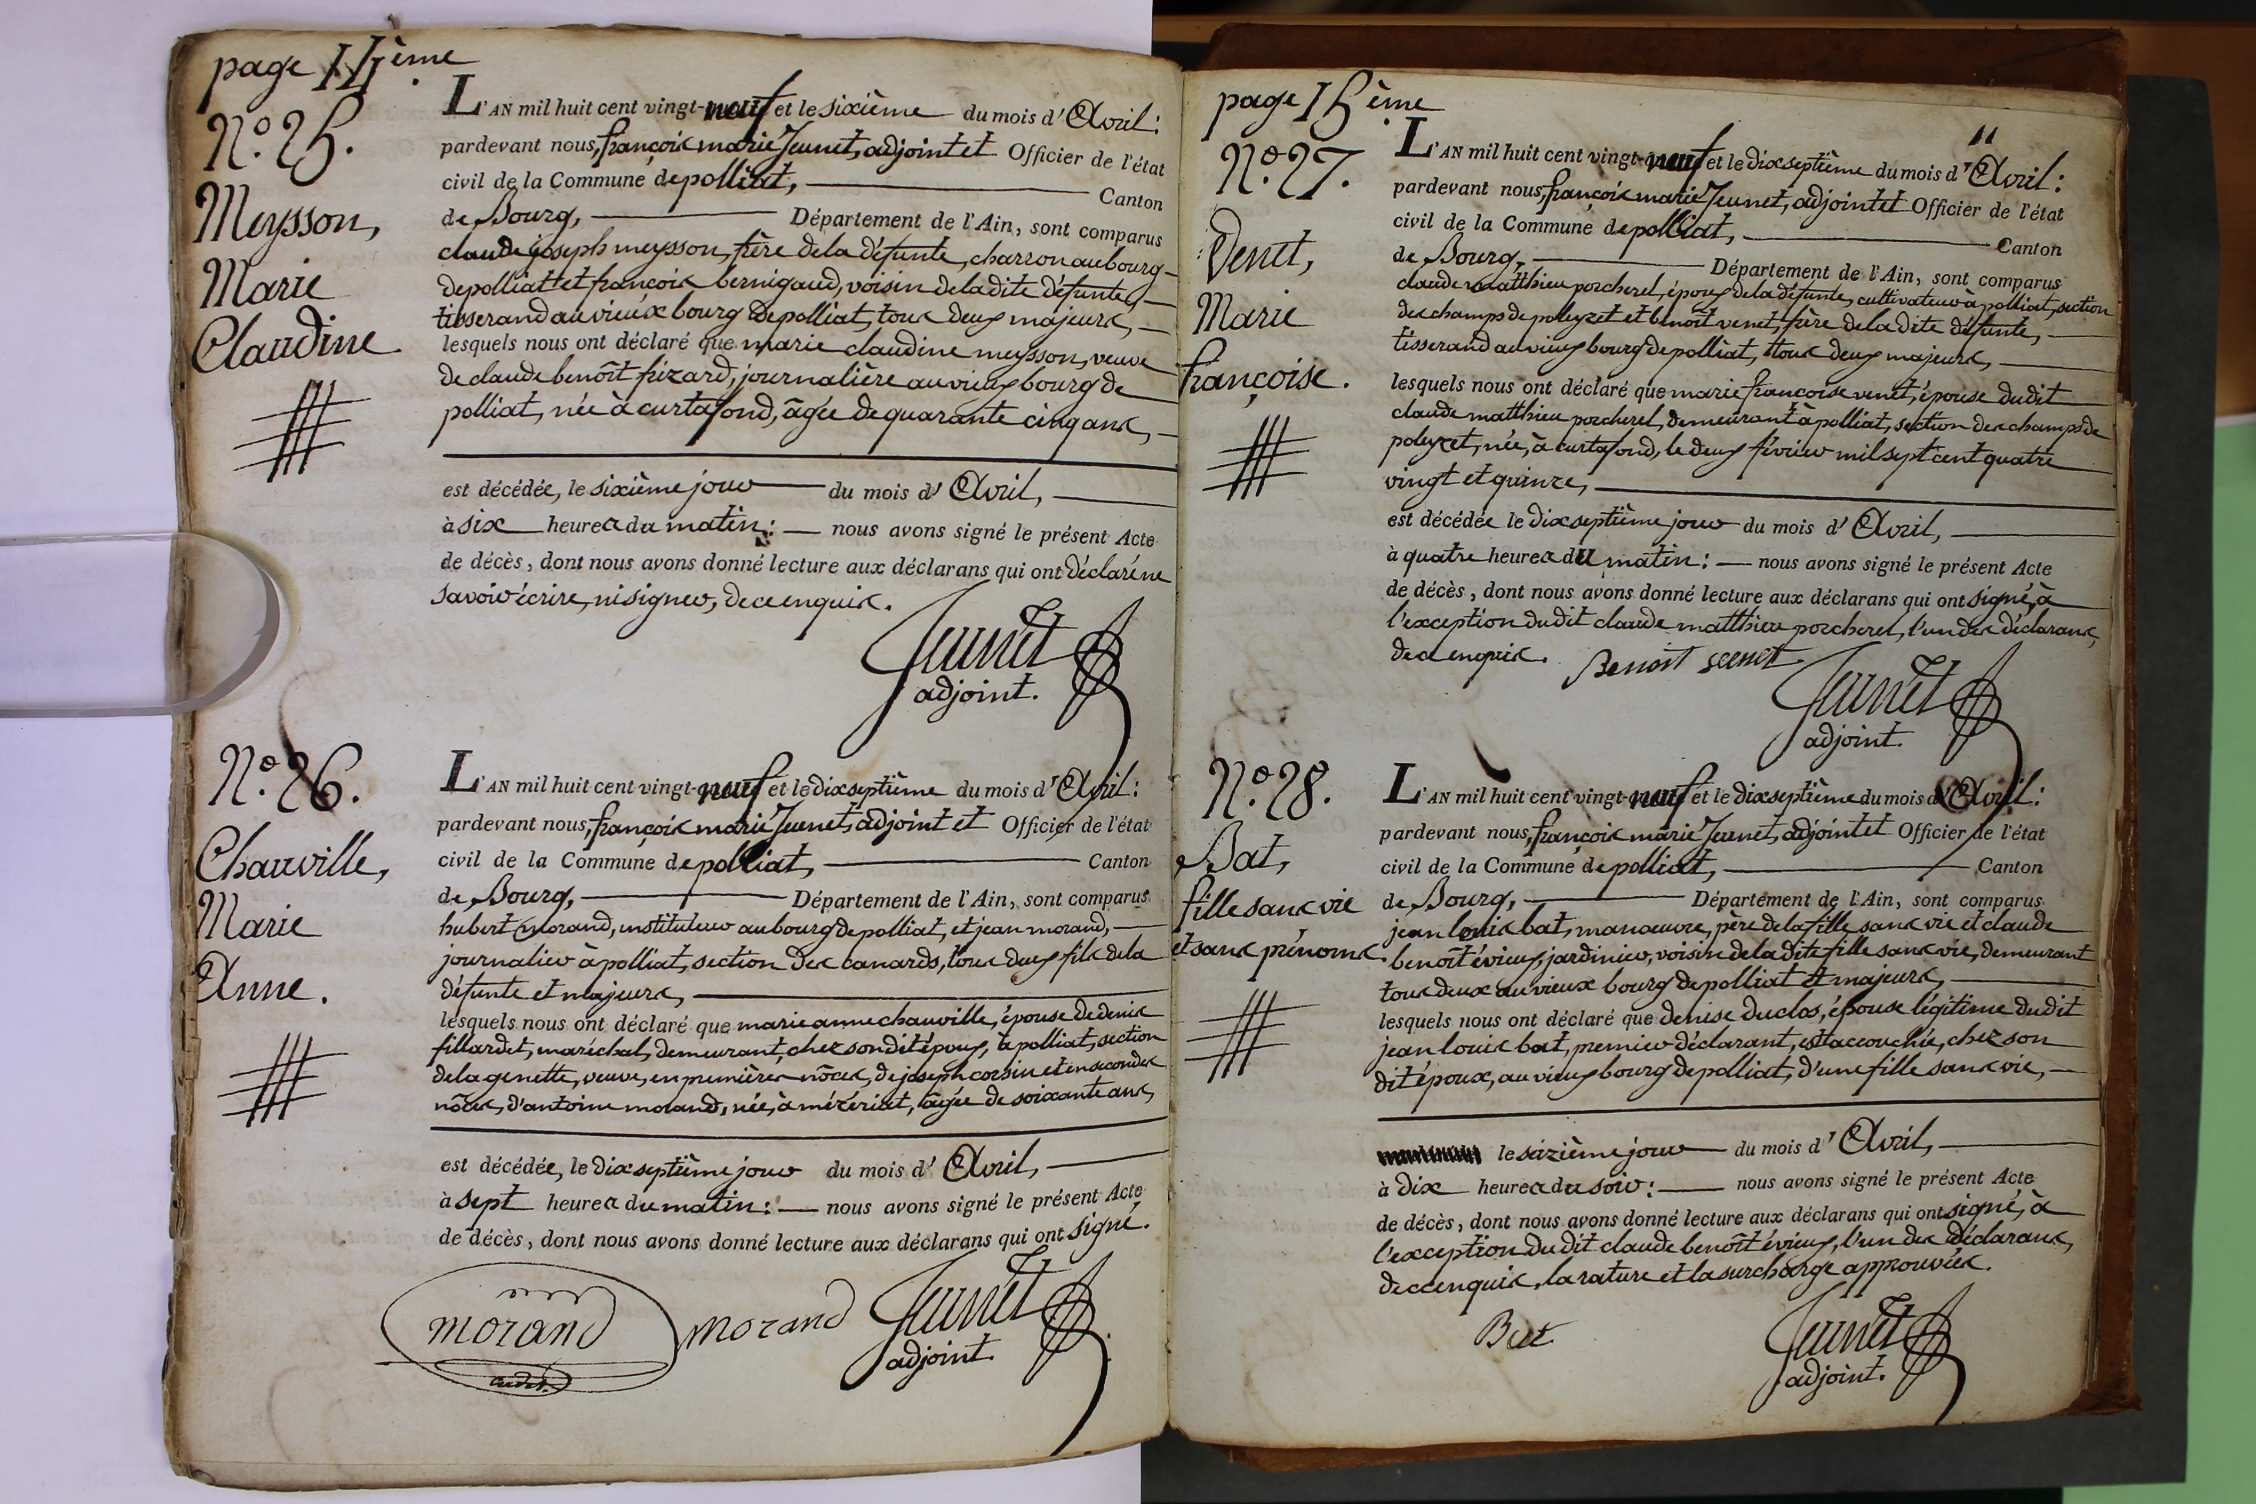 page 14ème
N.º 25.
Meysson,
Marie
Claudine
L'AN mil huit cent vingt-neuf et le sixième du mois d'Avril:
pardevant nous, françois marie Jeunet, adjoint et Officier de l'état
civil de la Commune de polliat, Canton
de Bourg, Département de l'Ain, sont comparus
claude joseph meysson, frère de la défunte, charron au bourg
de polliat et françois bernigaud, voisin de la dite défunte,
tisserand au vieux bourg de polliat, tous deux majeurs,
lesquels nous ont déclaré que marie claudine meysson, veuve
de claude benoît frizard, journalière au vieux bourg de
polliat, née à curtafond, âgée de quarante cinq ans,
est décédée, le sixième jour du mois d'Avril,
à six heures du matin: nous avons signé le présent Acte
de décès, dont nous avons donné lecture aux déclarans qui ont déclaré ne
savoir écrire, ni signer, de ce enquis.
Jeunet
adjoint.
N.º 26.
Chauville,
Marie
Anne.
L'AN mil huit cent vingt-neuf et le dix septième du mois d'Avril:
pardevant nous, françois marie Jeunet, adjoint et Officier de l'état
civil de la Commune de polliat, Canton
de Bourg, Département de l'Ain, sont comparus
hubert morand, instituteur au bourg de polliat, et jean morand,
journalier à polliat, section des canards, tous deux fils de la
défunte et majeurs,
lesquels nous ont déclaré que marie anne chauville, épouse de denis
fillardet, maréchal, demeurant, chez son dit époux, à polliat, section
de la genette, veuve, en premières nôces, de joseph corsin et en secondes
nôces, d'antoine morand, née, à mézériat, âgée de soixante ans,
est décédée, le dix septième jour du mois d'Avril,
à sept heures du matin: nous avons signé le présent Acte
de décès, dont nous avons donné lecture aux déclarans qui ont signé.
morand morand Jeunet
adjoint.
page 15ème
11
N.º 27.
Venet,
Marie
françoise.
L'AN mil huit cent vingt-neuf et le dix septième du mois d'Avril:
pardevant nous, françois marie Jeunet, adjoint et Officier de l'état
civil de la Commune de polliat, Canton
de Bourg, Département de l'Ain, sont comparus
claude matthieu porcherel, époux de la défunte, cultivateur à polliat, section
des champs de poleyzet et benoît venet, frère de la dite défunte,
tisserand au vieux bourg de polliat, tous deux majeurs,
lesquels nous ont déclaré que marie françoise venet, épouse du dit
claude matthieu porcherel, demeurant à polliat, section des champs de
poleyzet, née, à curtafond, le deux février mil sept cent quatre
vingt et quinze,
est décédée le dix septième jour du mois d'Avril,
à quatre heures du matin: nous avons signé le présent Acte
de décès, dont nous avons donné lecture aux déclarans qui ont signé, à
l'exception du dit claude matthieu porcherel, l'un des déclarans,
de ce enquis. Benoit venet
Jeunet
adjoint.
N.º 28.
Bat,
fille sans vie
et sans prénoms.
L'AN mil huit cent vingt-neuf et le dix septième du mois d'Avril:
pardevant nous, françois marie Jeunet, adjoint et Officier de l'état
civil de la Commune de polliat, Canton
de Bourg, Département de l'Ain, sont comparus
jean louis bat, manoeuvre, père de la fille sans vie et claude
benoît évieux, jardinier, voisin de la dite fille sans vie, demeurant
tous deux au vieux bourg de polliat et majeurs,
lesquels nous ont déclaré que denise duclos, épouse légitime du dit
jean louis bat, premier déclarant, est accouchée, chez son
dit époux, au vieux bourg de polliat, d'une fille sans vie,
le seizième jour du mois d'Avril,
à dix heures du soir: nous avons signé le présent Acte
de décès, dont nous avons donné lecture aux déclarans qui ont signé, à
l'exception du dit claude benoît évieux, l'un des déclarans,
de ce enquis, la rature et la surcharge approuvées.
Bat
Jeunet
adjoint.